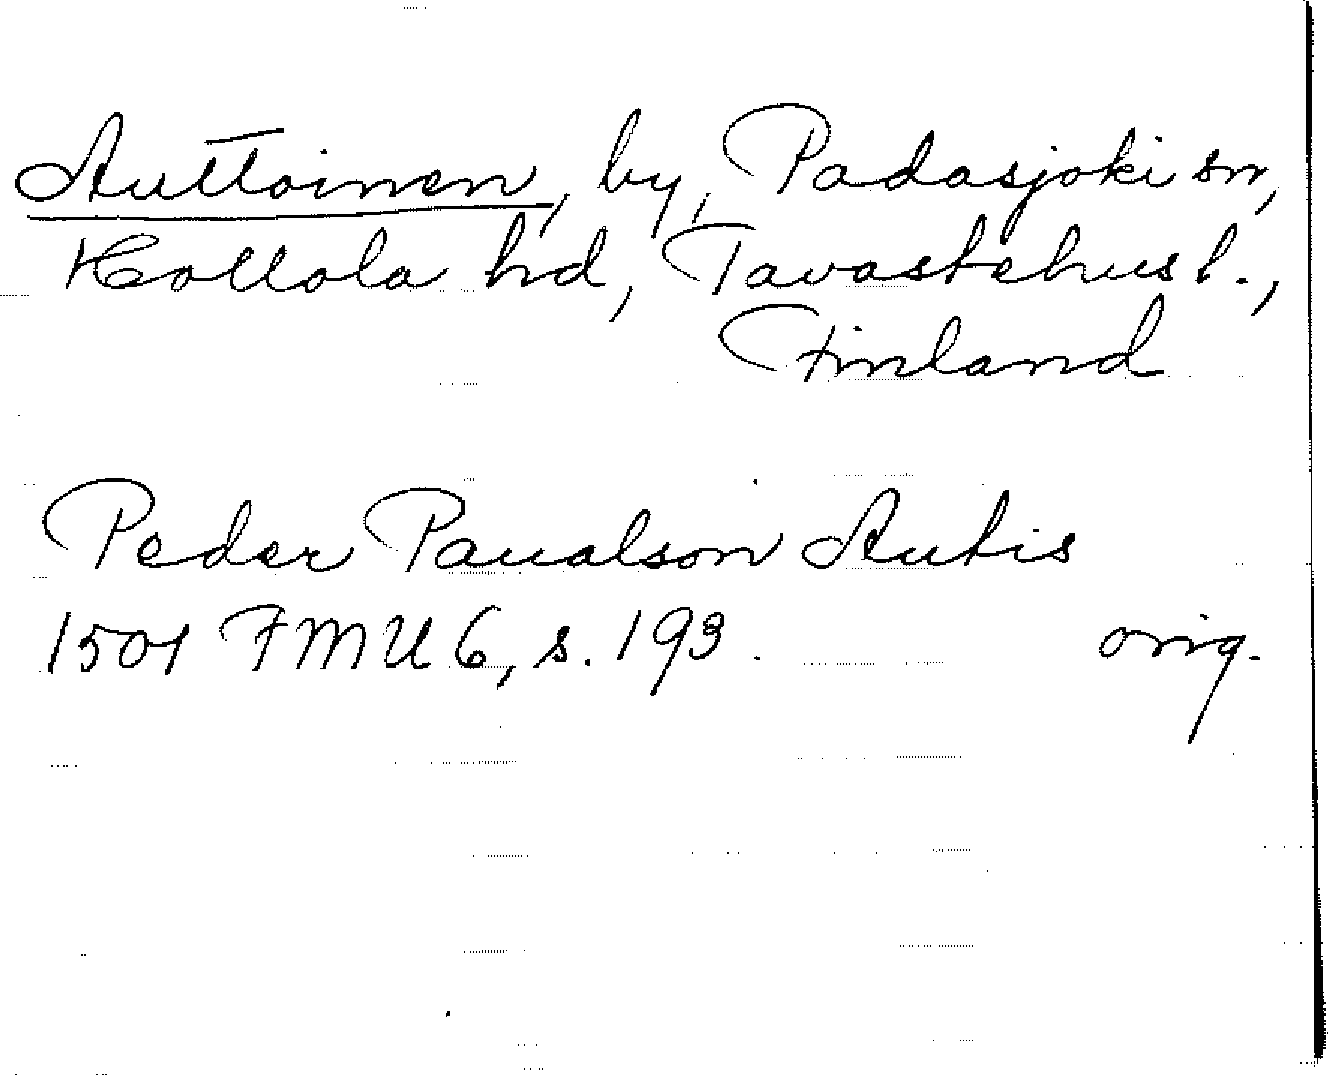 Auttoinen, by, Padasjoki sn,
Hollola hd, Tavastehus l.,
Finland
Peder Paualson Autis
1501 FMU 6, s. 193. orig.